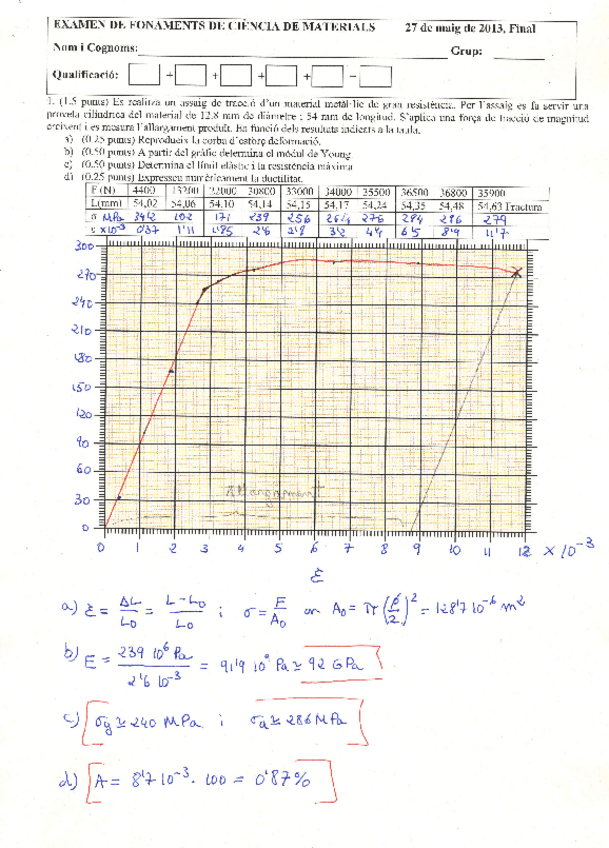 EXAMEN DE FONAMENTS DE CIÈNCIA DE MATERIALS 27 de maig de 2013, Final
Nom i Cognoms: Grup:
Qualificació: + + + + –
1. (1.5 punts) Es realitza un assaig de tracció d'un material metàl·lic de gran resistència. Per l'assaig es fa servir una
proveta cilíndrica del material de 12.8 mm de diàmetre i 54 mm de longitud. S'aplica una força de tracció de magnitud
creixent i es mesura l'allargament produït. En funció dels resultats indicats a la taula.
a) (0.25 punts) Reprodueix la corba d'esforç deformació.
b) (0.50 punts) A partir del gràfic determina el mòdul de Young.
c) (0.50 punts) Determina el límit elàstic i la resistència màxima
d) (0.25 punts) Expresseu numèricament la ductilitat.
F (N) 4400 13200 22000 30800 33000 34000 35500 36500 36800 35900
L(mm) 54,02 54,06 54,10 54,14 54,15 54,17 54,24 54,35 54,48 54,63 Tractura
σ MPa 34'2 102 171 239 256 264 276 284 286 279
ε x10⁻³ 0'37 1'11 1'85 2'6 2'8 3'2 4'4 6'5 8'9 11'7
300
270
240
210
180
150
120
90
60
30
0
Allargament
0 1 2 3 4 5 6 7 8 9 10 11 12 x 10⁻³
ε
a) ε = ΔL/L₀ = L-L₀/L₀ i σ = F/A₀ on A₀ = π (φ/2)² = 128'7 10⁻⁶ m²
b) E = 239 10⁶ Pa / 2'6 10⁻³ = 91'9 10⁹ Pa ≃ 92 GPa
c) σy ≃ 240 MPa i σu ≃ 286 MPa
d) A = 8'7 10⁻³ · 100 = 0'87%